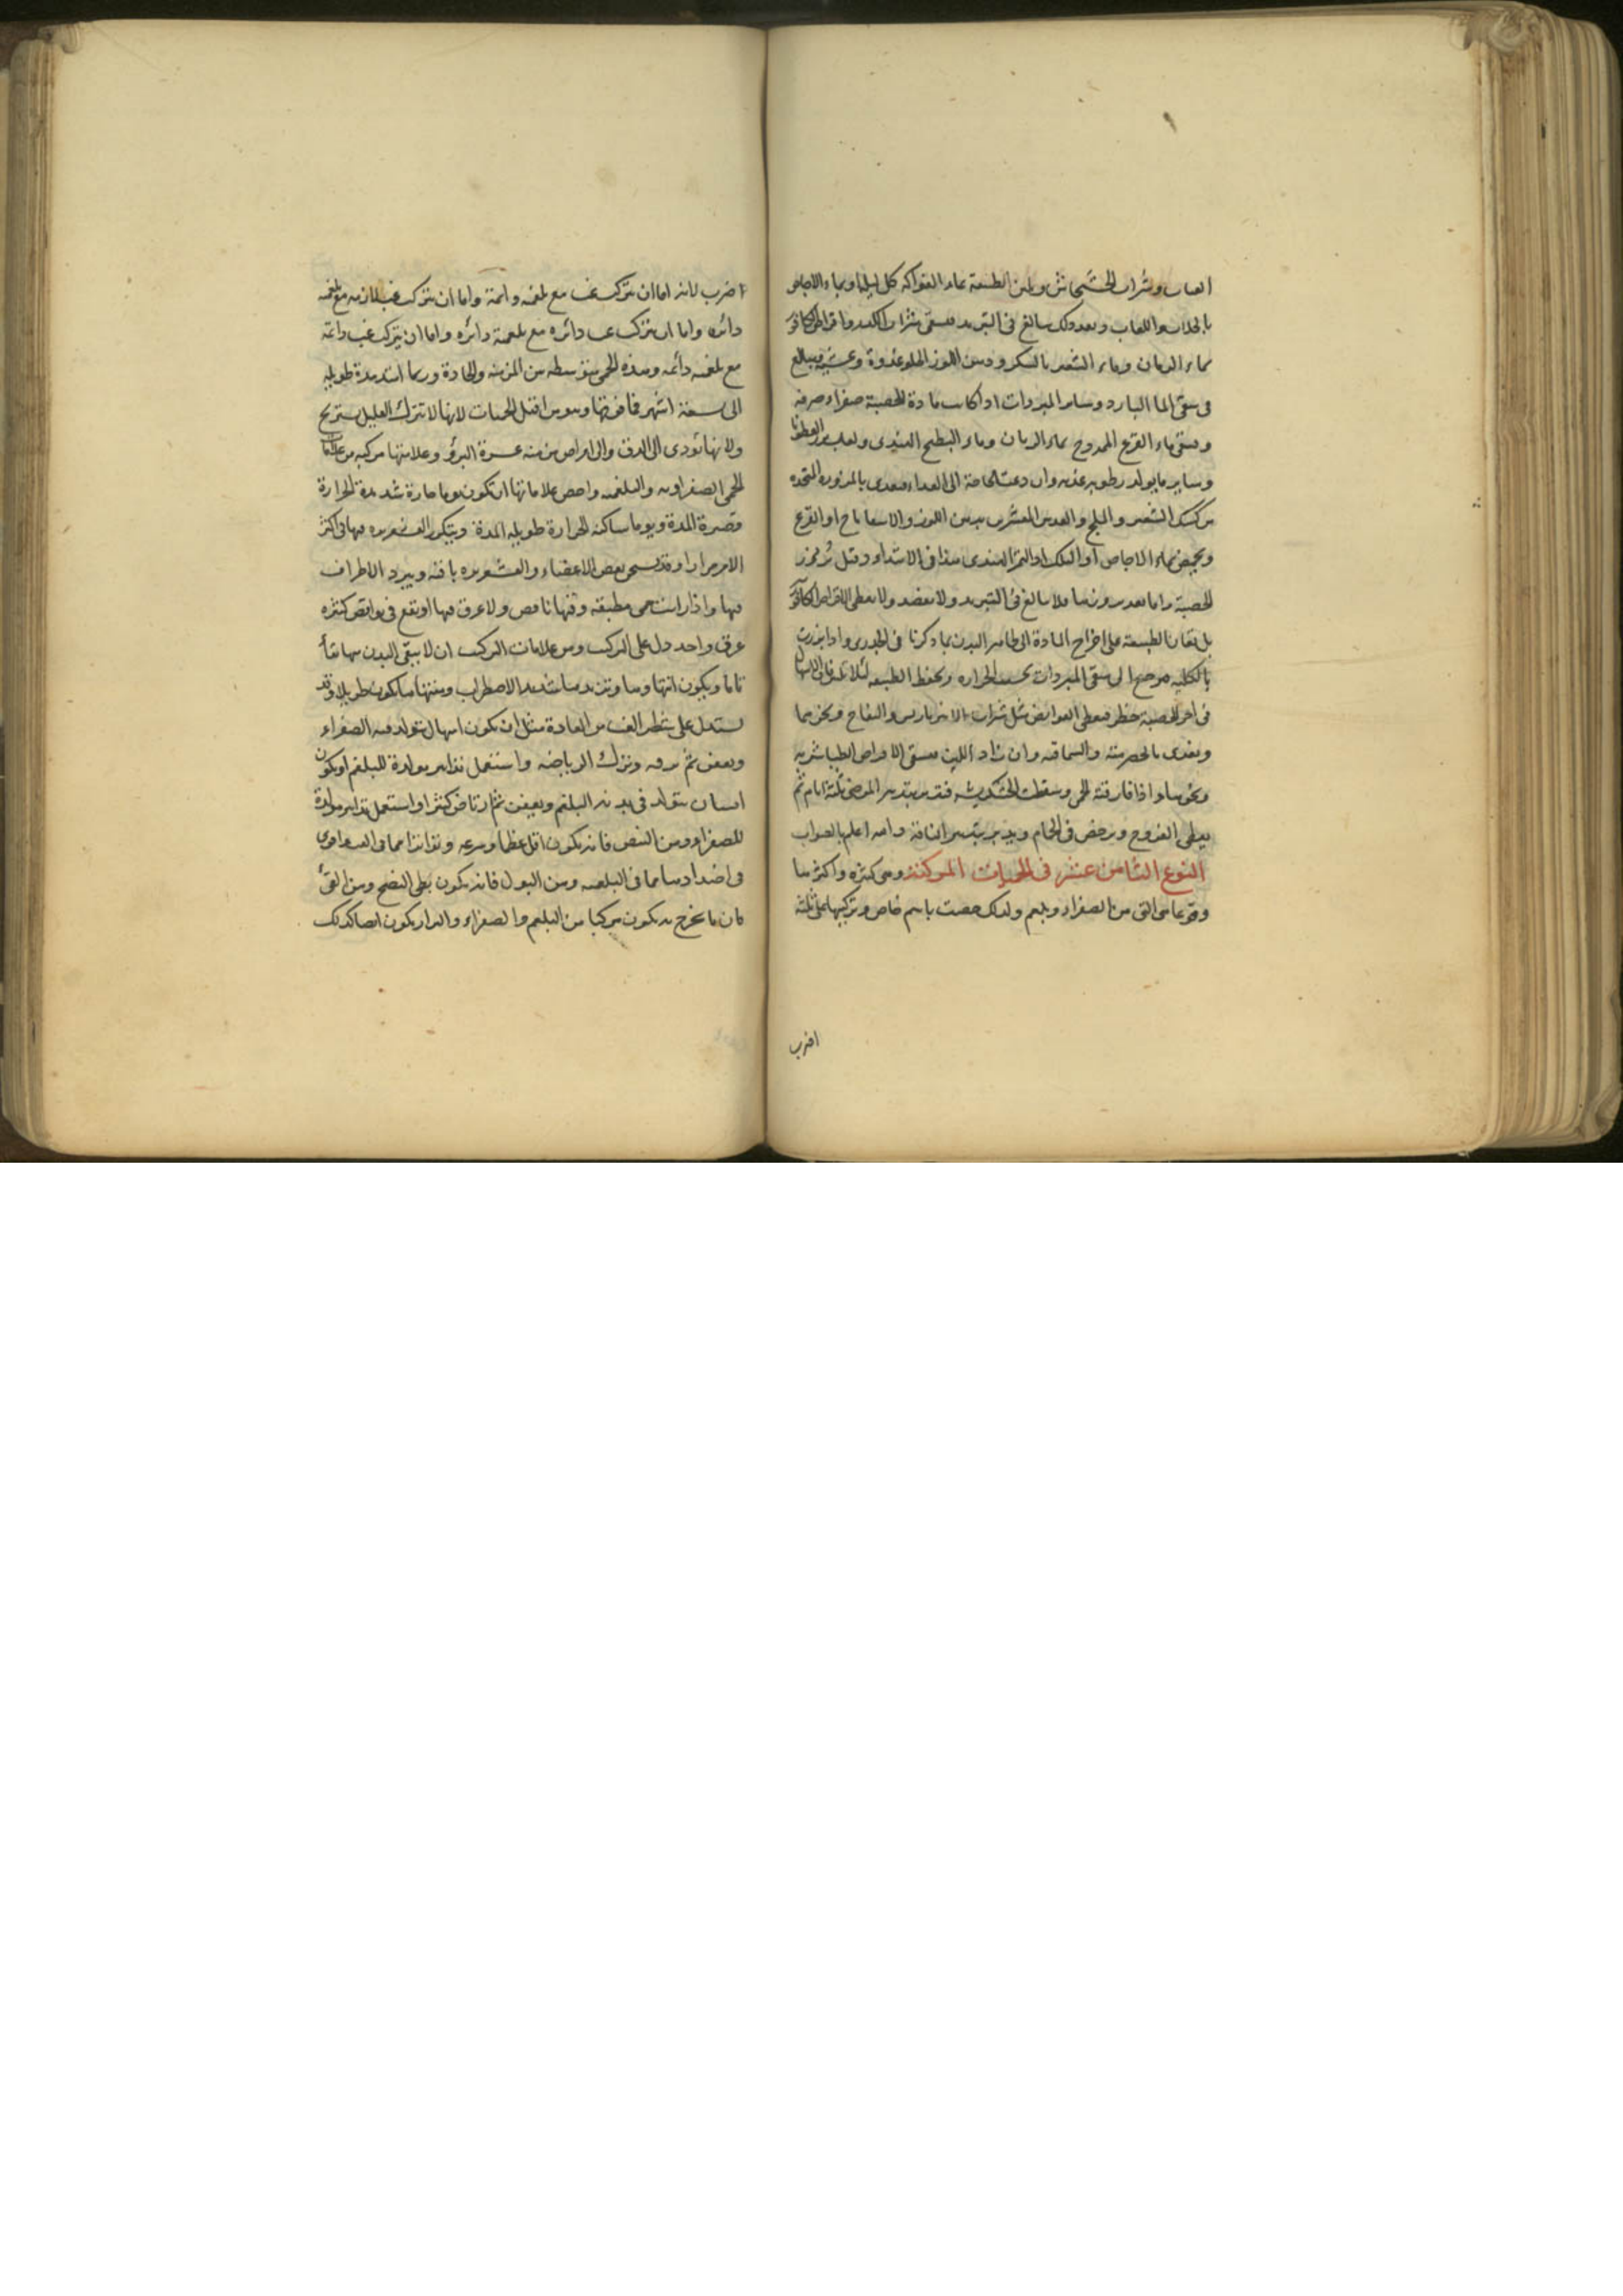 العناب وشراب الخشخاش ويلين الطبيعة بماء الفواكه كل ليلة او بماء الاجاص
بالجلاب واللعاب وبعد ذلك يبالغ في التبريد فيسقى شراب الكدر واقراص الكافور
بماء الرمان وماء الشعير بالسكر ودهن اللوز الحلو غدوة وعشية ويبالغ
في سقى الما البارد وساير المبردات اذا كانت مادة الحصبة صفراء صرفه
ويسقى ماء القرع الممزوج بماء الرمان وماء البطيخ الهندى ولعاب بزر القطونا
وساير ما يولد رطوبه عذبه وان دعت الحاجة الى الغداء فيغدى بالمزوره المتخذه
من كشك الشعير والماش والعدس المقشر بدهن اللوز والاسفاناخ او القرع
ويحمض بماء الاجاص او التمر الهندى هذا فى الابتداء وقبل بروز
الحصبة واما بعد بروزها فلا يبالغ فى التبريد ولا يفصد ولا يعطى اقراص الكافور
بل تعان الطبيعة على اخراج المادة الى ظاهر البدن بما ذكرنا فى الجدرى واذا برزت
بالكليه فيرجع الى سقى المبردات بحسب الحراره ويحفظ الطبيعه لئلا تلين فان الاسهال
فى آخر الحصبة خطر فيعطى القوابض مثل شراب الانبرباريس والتفاح ونحوهما
ويغدى بالحصرميه والسماقيه وان زاد اللين فيسقى اقراص الطباشيريه
ونحوها واذا فارقته الحمى وسقطت الخشكريشه فتدبر بتدبير المرضى ثلثة ايام ثم
يعطى الفروج ويرخص فى الحمام ويدبر بتدبير الناقه والله اعلم بالصواب
النوع الثامن عشر فى الحميات المركبة وهى كثيره واكثرها
وقوعا هى التى من الصفراء وبلغم ولذلك خصت باسم خاص وتركيبها على ثلثة
اضرب
اضرب لانه اما ان تتركب غب مع بلغميه دائمة واما ان تتركب غب لازمه مع بلغميه
دائره واما ان تتركب غب دائره مع بلغمية دائره واما ان تتركب غب دائمة
مع بلغميه دائمه وهذه الحمى متوسطه من المزمنه والحادة وربما امتدت مدة طويله
الى سبعة اشهر فما فوقها وهو من اقتل الحميات لانها لا تترك العليل يستريح
ولانها تودى الى الدق والى امراض مزمنه عسرة البرؤ وعلامتها مركبه من علامات
الحمى الصفراويه والبلغميه واخص علاماتها ان تكون يوما حارة شديدة الحرارة
وقصيرة المدة ويوما ساكنه الحرارة طويله المدة ويتكرر القشعريره فيها فى اكثر
الامر مرارا وقد يسخن بعض الاعضاء والقشعريره باقيه ويبرد الاطراف
فيها واذا رايت حمى مطبقه وفيها نافض ولا عرق فيها او يقع فى نوايض كثيره
عرق واحد دل على التركيب ومن علامات التركيب ان لا يبقى البدن منها نقاء
تاما ويكون انتهاوها وتزيدها شديد الاضطراب ومنتهاها يكون طويلا وقد
يستدل على شطر الغب من العادة مثل ان يكون انسان يتولد فيه الصفراء
ويعفن ثم ترفه وترك الرياضه واستعمل تدابير مولدة للبلغم او يكون
انسان يتولد فى بدنه البلغم ويعفن ثم ارتاض كثيرا واستعمل تدابير مولدة
للصفراء ومن النبض فانه يكون اقل عظما وسرعه وتواترا مما فى الصفراوى
فى اضدادها مما فى البلغميه ومن البول فانه يكون بطى النضج ومن القئ
فان ما يخرج به يكون مركبا من البلغم والصفراء والبراز يكون ايضا كذلك